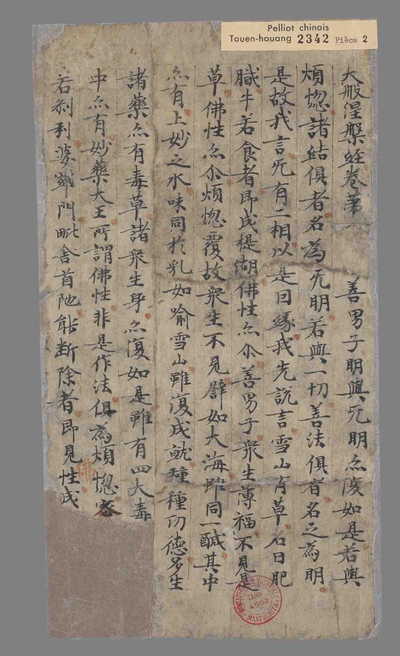 Pelliot chinois
Touen-houang 2342 Pièce 2
大般涅槃經卷第 善男子明與无明亦復如是若與
煩惚諸結俱者名為无明若與一切善法俱者名之為明
是故我言无有二相以是因緣我先說言雪山有草名曰肥
膩牛若食者即成醍醐佛性亦尒善男子眾生薄福不見是
草佛性亦尒煩惚覆故眾生不見譬如大海雖同一醎其中
亦有上妙之水味同於乳如喻雪山雖復成就種種功德多生
諸藥亦有毒草諸眾生身亦復如是雖有四大毒
中亦有妙藥大王所謂佛性非是作法俱為煩惚客
若剎利婆羅門毗舍首陁能斷除者即見性成